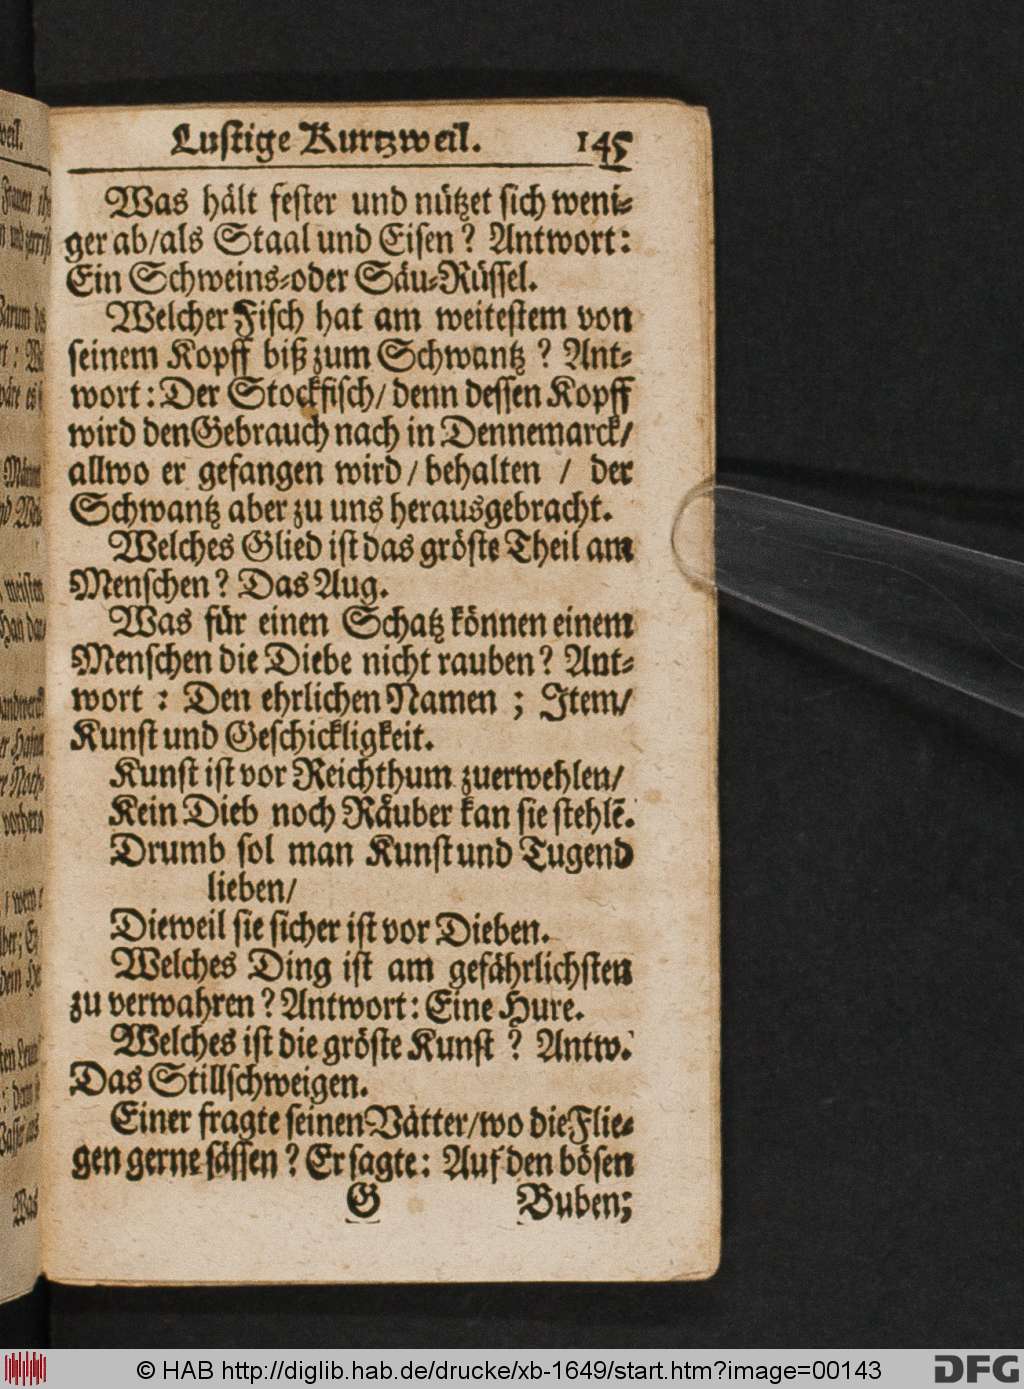 Lustige Kurtzweil. 145
Was hält fester und nützet sich weni-
ger ab/als Staal und Eisen? Antwort:
Ein Schweins-oder Säu-Rüssel.
Welcher Fisch hat am weitestem von
seinem Kopff biß zum Schwantz? Ant-
wort: Der Stockfisch/ denn dessen Kopff
wird den Gebrauch nach in Dennemarck/
allwo er gefangen wird/ behalten / der
Schwantz aber zu uns herausgebracht.
Welches Glied ist das gröste Theil am
Menschen? Das Aug.
Was für einen Schatz können einem
Menschen die Diebe nicht rauben? Ant-
wort: Den ehrlichen Namen; Item/
Kunst und Geschickligkeit.
Kunst ist vor Reichthum zuerwehlen/
Kein Dieb noch Räuber kan sie stehlē.
Drumb sol man Kunst und Tugend
lieben/
Dieweil sie sicher ist vor Dieben.
Welches Ding ist am gefährlichsten
zu verwahren? Antwort: Eine Hure.
Welches ist die gröste Kunst? Antw.
Das Stillschweigen.
Einer fragte seinen Vätter/wo die Flie-
gen gerne sässen? Er sagte: Auf den bösen
G Buben;
© HAB http://diglib.hab.de/drucke/xb-1649/start.htm?image=00143
DFG